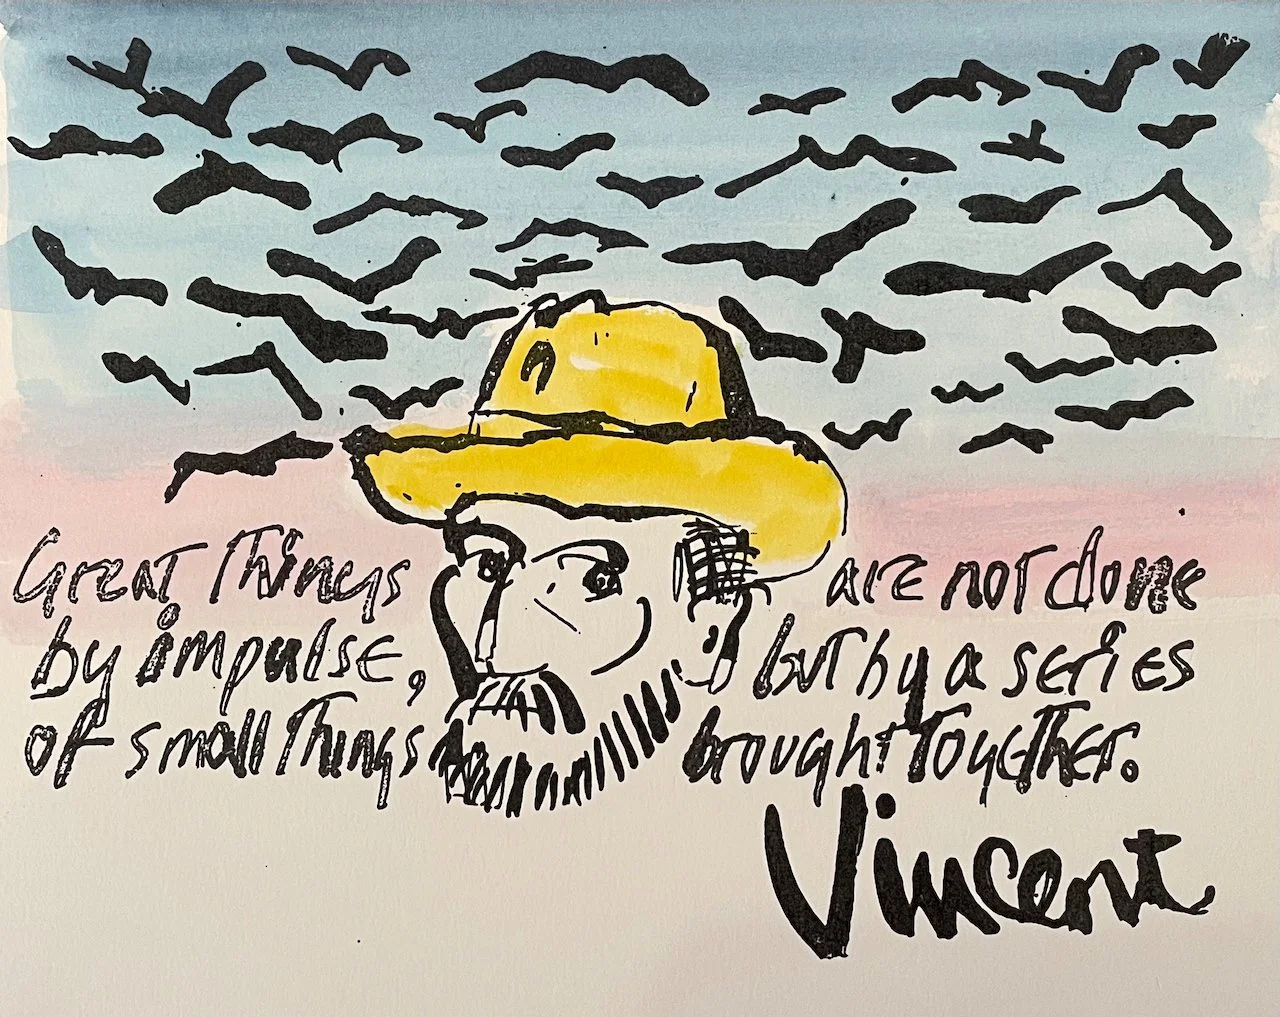 Great Things are not done
by impulse, but by a series
of small Things brought Together.
Vincent